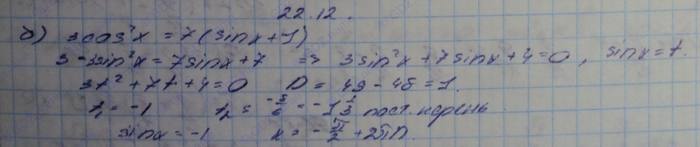 22.12.
б) 3cos²x = 7(sinx+1)
3-3sin²x = 7sinx+7 => 3sin²x+7sinx+4=0, sinx=t.
3t²+7t+4=0 D = 49-48=1.
t₁ = -1 t₂ = -8/6 = -1 1/3 пост. корень.
sinx=-1 x = -π/2 + 2πn.